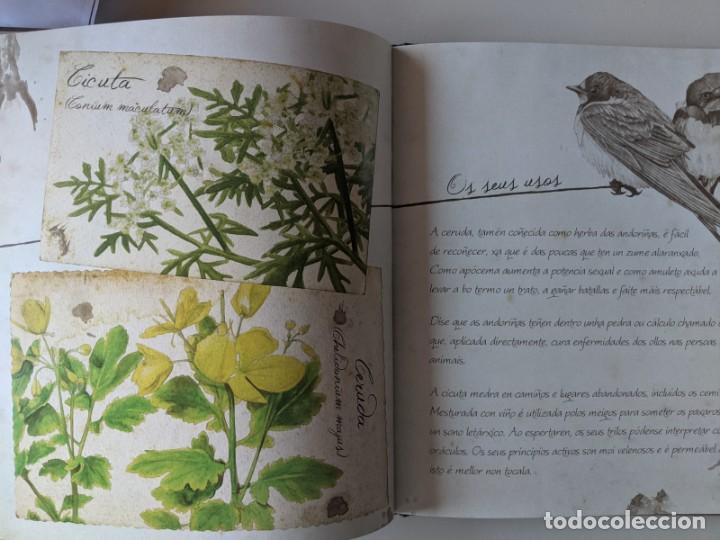 Cicuta
(Conium maculatum)
Ceruda
(Chelidonium majus)
Os seus usos
A ceruda, tamén coñecida como herba das andoriñas, é fácil
de recoñecer, xa que é das poucas que ten un zume alaranxado.
Como apocema aumenta a potencia sexual e como amuleto axuda a
levar a bo termo un trato, a gañar batallas e faite máis respectábel.
Dise que as andoriñas teñen dentro unha pedra ou cálculo chamado
que, aplicada directamente, cura enfermidades dos ollos nas persoas
animais.
A cicuta medra en camiños e lugares abandonados, incluídos os cemi
Mesturada con viño é utilizada polos meigos para someter os paxaros
un sono letárxico. Ao espertaren, os seus trilos pódense interpretar co
oráculos. Os seus principios activos son moi velenosos e é permeábel
isto é mellor non tocala.
todocoleccion.net